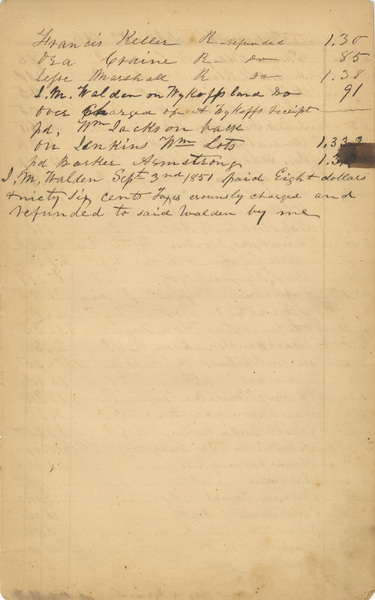 Francis Keller R- refunded 1.30
Craine R- do 85
Jesse Marshall R do 1.38
J. M. Walden on Wykoffs land Do 91
over Charged on A Wykoffs receipt
pd, Wm Jackson back
on Jenkins Wm Lots 1.33
pd Barker Armstrong
J. M. Walden Sept 3rd 1851 paid Eight dollars
+ niety six cents Taxes erounsly charged and
refunded to said Walden by me